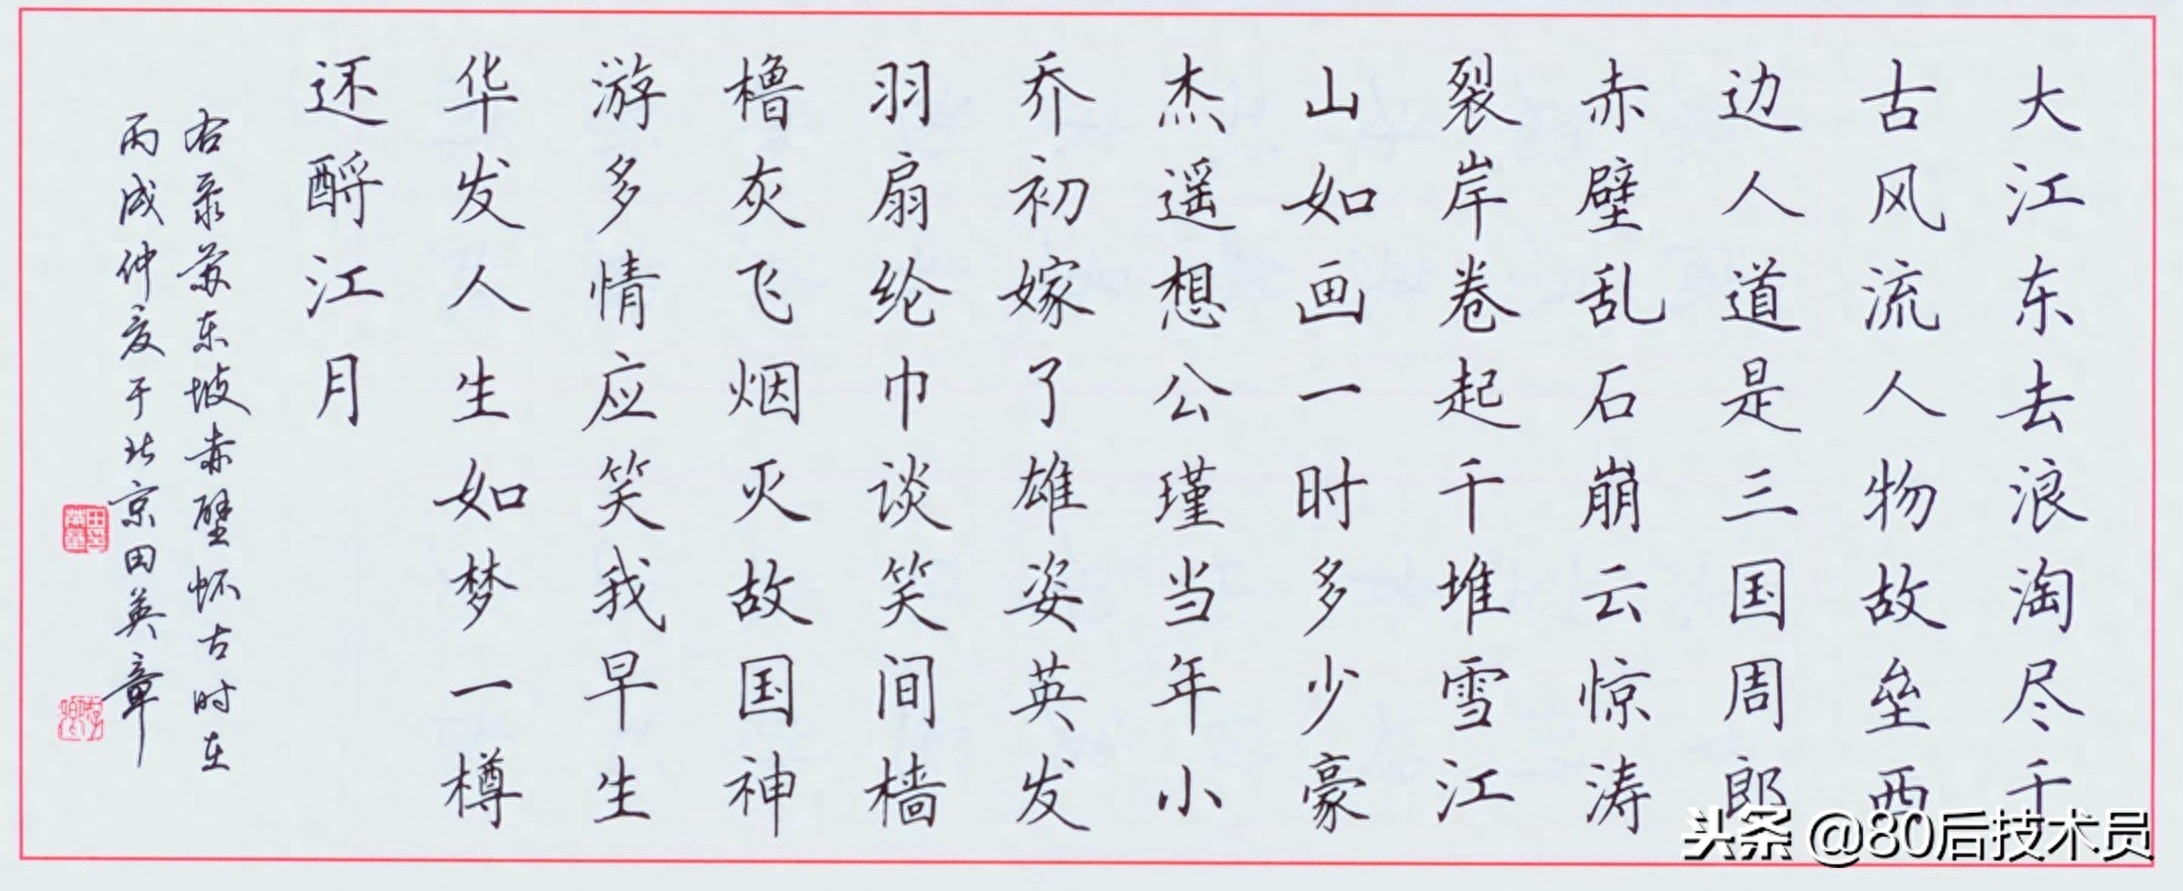 大江东去浪淘尽千
古风流人物故垒西
边人道是三国周郎
赤壁乱石崩云惊涛
裂岸卷起千堆雪江
山如画一时多少豪
杰遥想公瑾当年小
乔初嫁了雄姿英发
羽扇纶巾谈笑间樯
橹灰飞烟灭故国神
游多情应笑我早生
华发人生如梦一樽
还酹江月
右录苏东坡赤壁怀古时在
丙戌仲夏于北京田英章
田英章
头条 @80后技术员